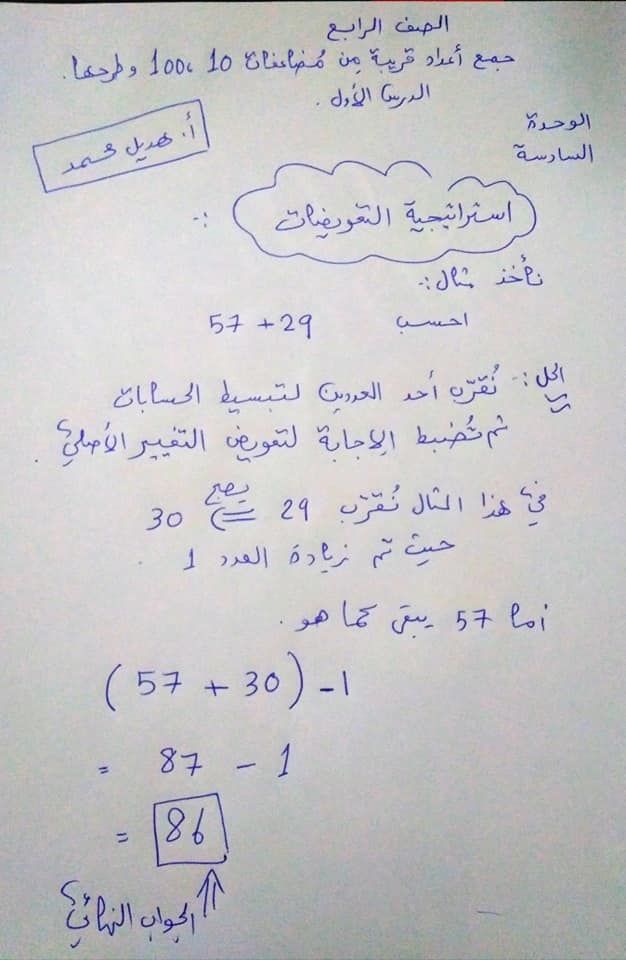 الصف الرابع
جمع أعداد قريبة من مُضاعفات 10 ،100 وطرحها.
الدرس الأول.
الوحدة
السادسة
أ. هديل محمد
استراتيجية التعويضات :-
نأخذ مثال :-
احسب 57 + 29
الحل :- نُقرّب أحد العددين لتبسيط الحسابات
ثم تُضبط الإجابة لتعويض التغيير الأصلي.
في هذا المثال نُقرّب 29 يصبح 30
حيث تم زيادة العدد 1.
أما 57 يبقى كما هو.
(57 + 30) - 1
= 87 - 1
= 86
الجواب النهائي